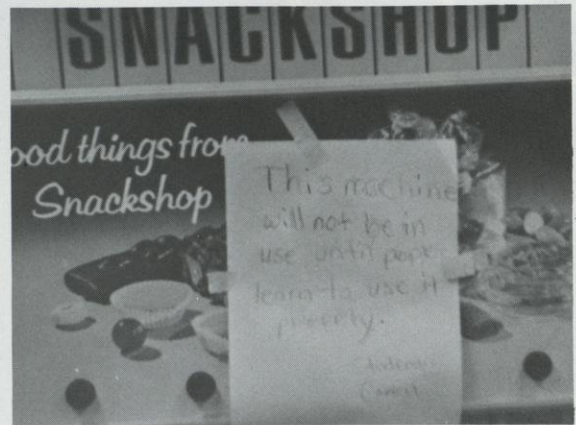 SNACKSHOP
ood things from
Snackshop
This machine
will not be in
use until
learn to use it
Student